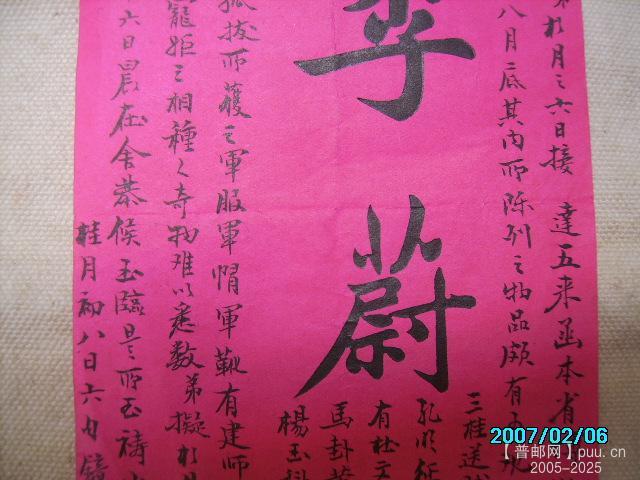 於月之六日接 達五来函本省
八月底其内所陳列之物品頗有
李蔚
三桂送
孔明征
有杜文
馬卦
楊玉
孤拔所獲之軍服軍帽軍靴有建師
寵姬之相種々奇物难以悉数弟擬於月
六日晨在舍恭候玉臨是所玉禱
桂月初八日六句鐘
2007/02/06
【普邮网】puu.cn
2005-2025